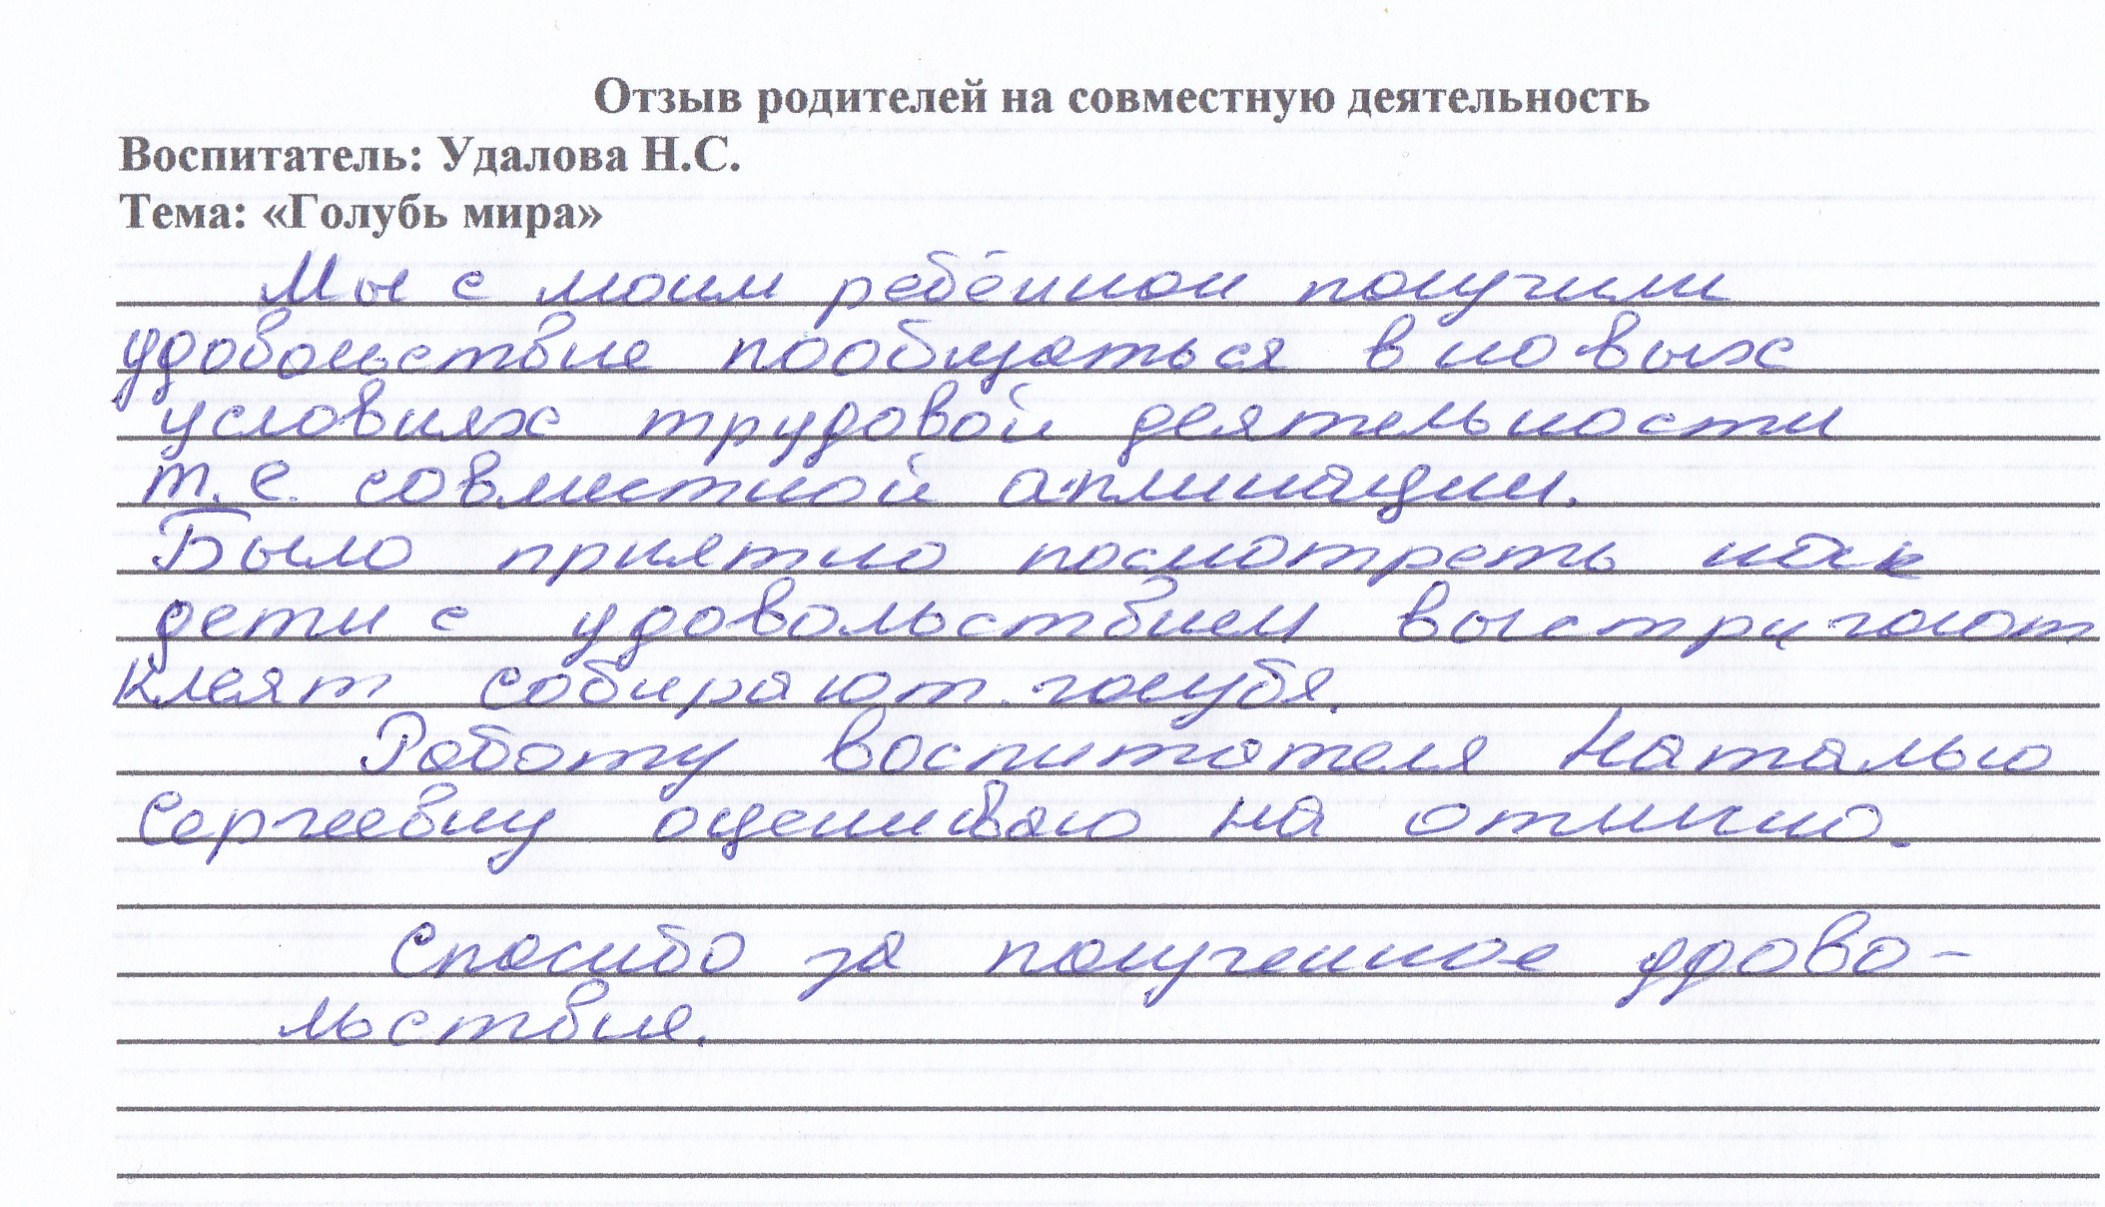 Отзыв родителей на совместную деятельность
Воспитатель: Удалова Н.С.
Тема: «Голубь мира»
Мы с моим ребёнком получили
удовольствие пообщаться в новых
условиях трудовой деятельности
т.е. совместной апликации.
Было приятно посмотреть как
дети с удовольствием выстригают
клеят собирают голубя.
Работу воспитателя Наталью
Сергеевну оцениваю на отлично.
Спасибо за полученное удово-
льствие.